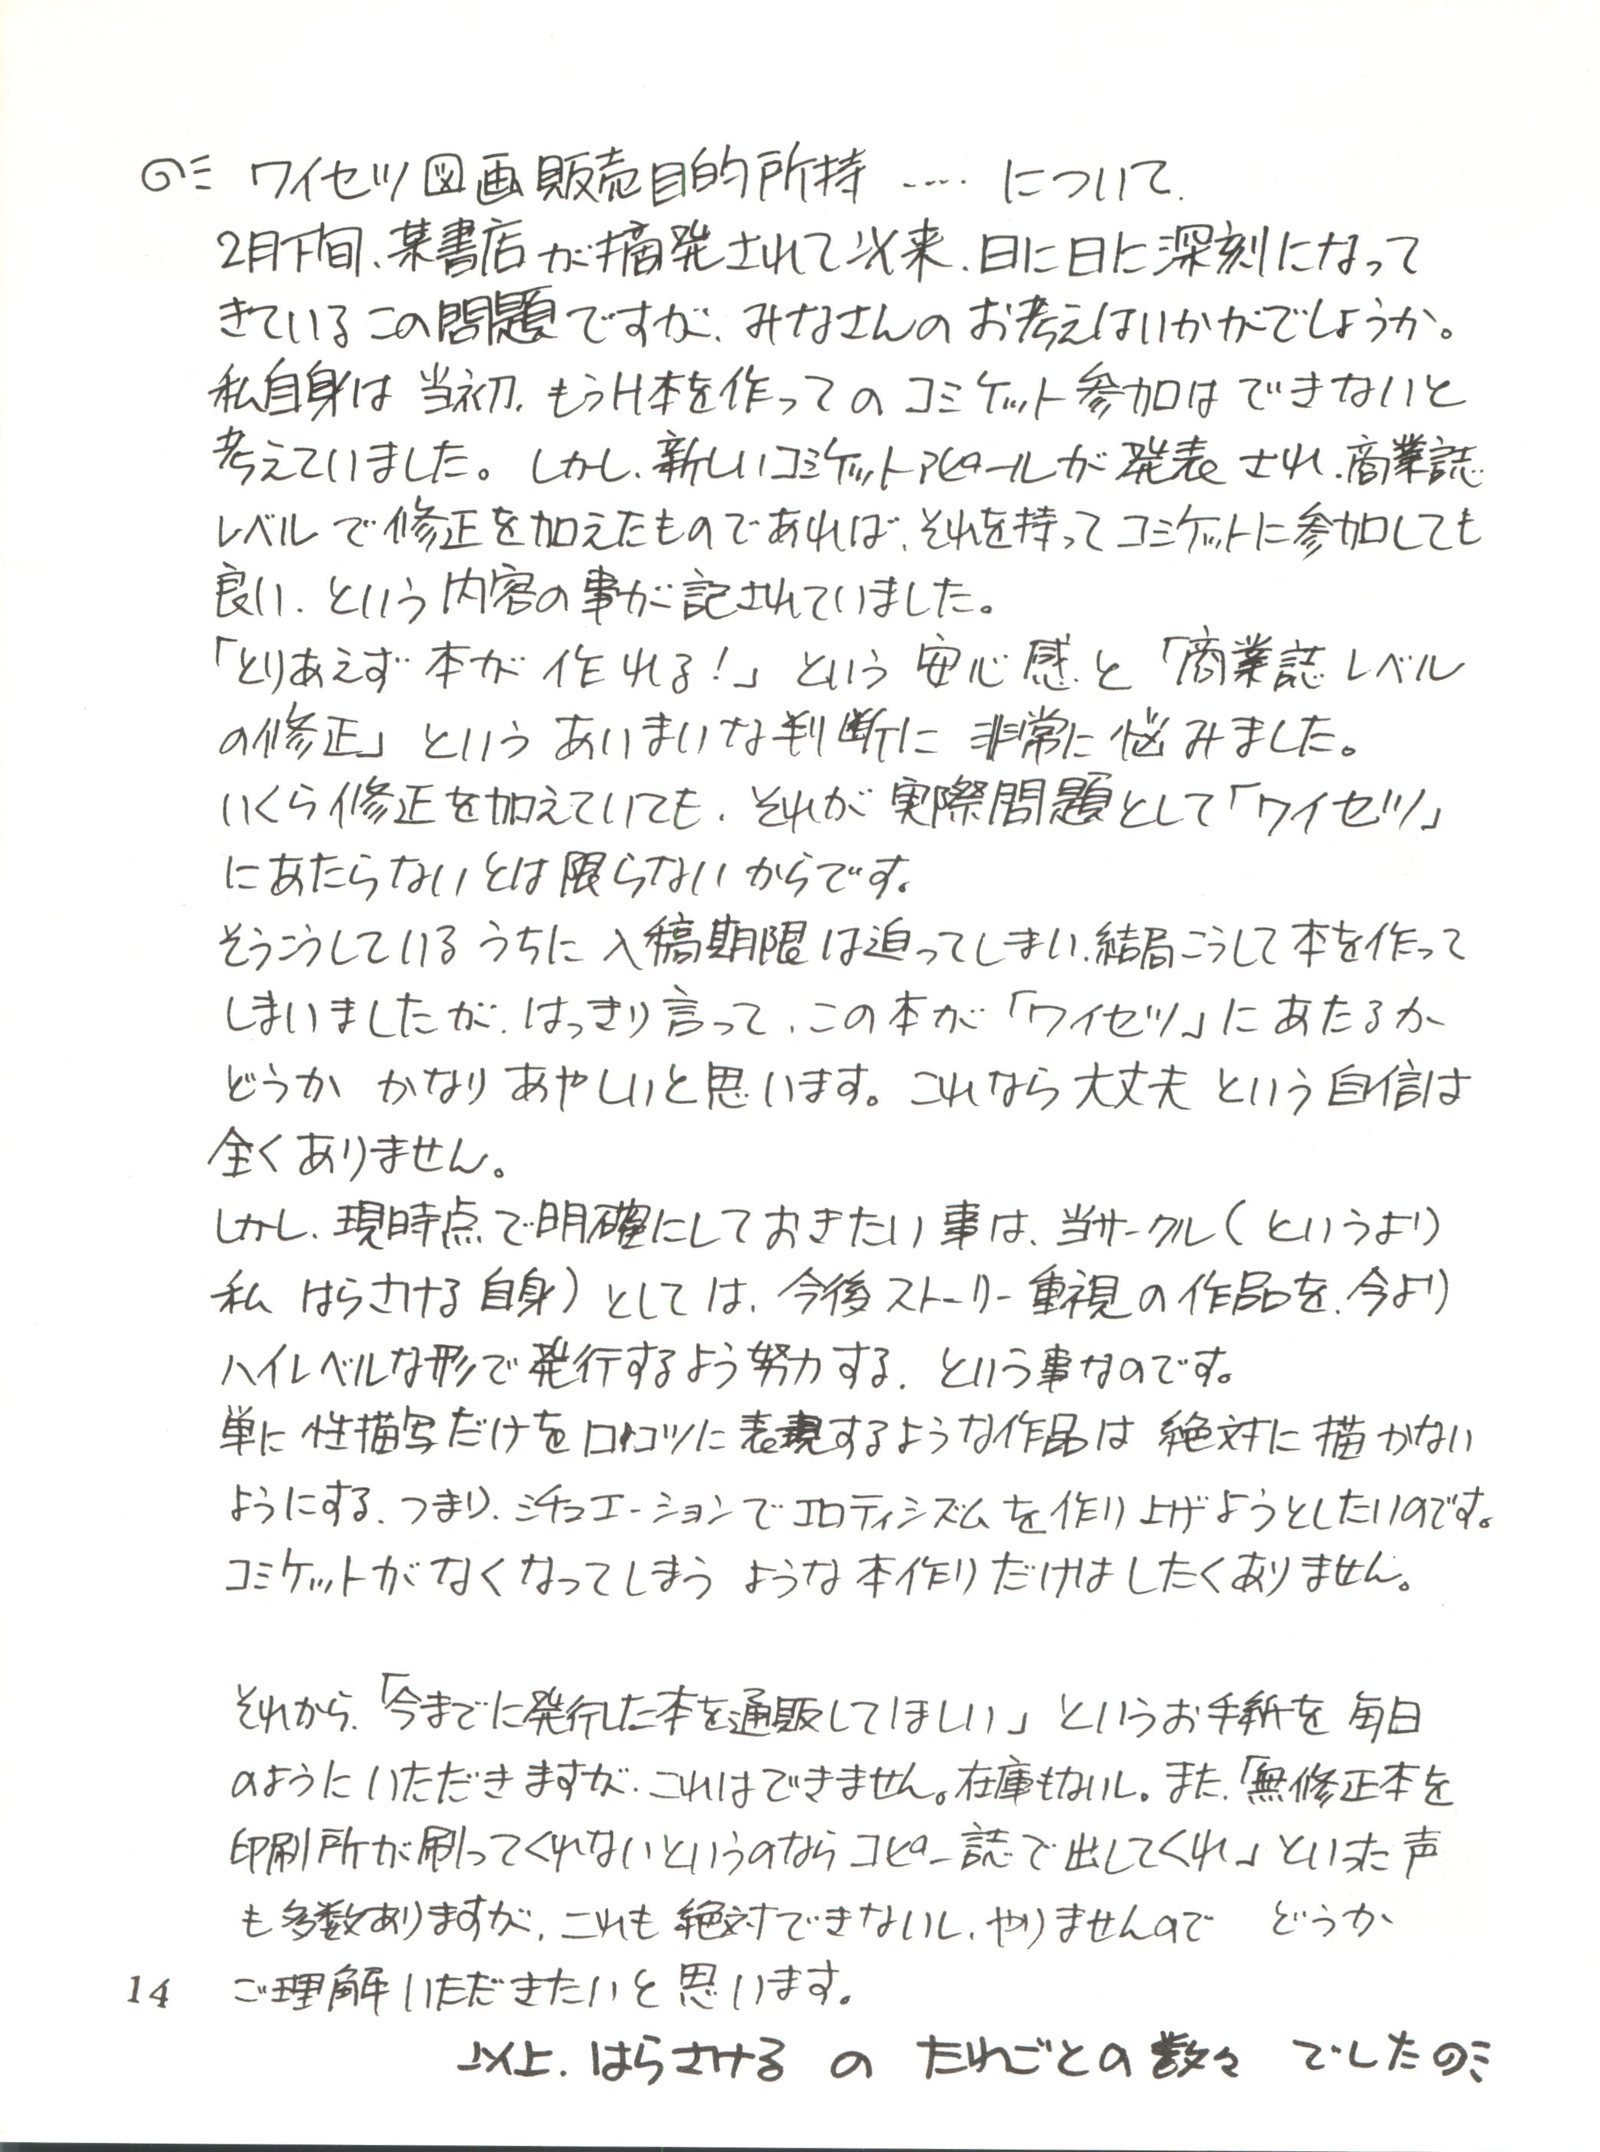 ワイセツ図画販売目的所持 ‥‥ について.
2月下旬、某書店が摘発されて以来、日に日に深刻になって
きているこの問題ですが、みなさんのお考えはいかがでしょうか。
私自身は当初、もうH本を作ってのコミケット参加はできないと
考えていました。しかし、新しいコミケットアピールが発表され、商業誌
レベルで修正を加えたものであれば、それを持ってコミケットに参加しても
良い、という内容の事が記されていました。
「とりあえず本が作れる！」という安心感と「商業誌レベル
の修正」というあいまいな判断に非常に悩みました。
いくら修正を加えていても、それが実際問題として「ワイセツ」
にあたらないとは限らないからです。
そうこうしているうちに入稿期限は迫ってしまい、結局こうして本を作って
しまいましたが、はっきり言って、この本が「ワイセツ」にあたるか
どうか かなりあやしいと思います。これなら大丈夫という自信は
全くありません。
しかし、現時点で明確にしておきたい事は、当サークル（というより
私 はらさける自身）としては、今後ストーリー重視の作品を、今より
ハイレベルな形で発行するよう努力する、という事なのです。
単に性描写だけをロコツに表現するような作品は絶対に描かない
ようにする、つまり、シチュエーションでエロティシズムを作り上げようとしたいのです。
コミケットがなくなってしまうような本作りだけはしたくありません。
それから、「今までに発行した本を通販してほしい」というお手紙を毎日
のようにいただきますが、これはできません。在庫もないし。また、「無修正本を
印刷所が刷ってくれないというのならコピー誌で出してくれ」といった声
も多数ありますが、これも絶対できないし、やりませんので どうか
ご理解いただきたいと思います。
14
以上、はらさける の たわごとの数々 でしたの